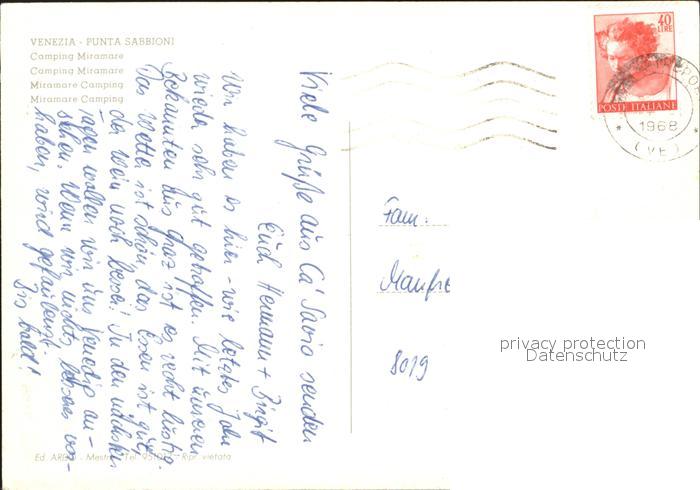 VENEZIA - PUNTA SABBIONI
Camping Miramare
Camping Miramare
Miramare Camping
Miramare Camping
Viele Grüße aus Ca' Savio senden
Euch Hermann + Birgit
Wir haben es hier - wie letztes Jahr
wieder sehr gut getroffen. Mit unseren
Bekannten aus Graz ist es recht lustig.
Das Wetter ist schön, das Essen ist gut,
der Wein noch besser! In den nächsten
Tagen wollen wir uns Venedig an-
sehen. Wenn wir nichts besseres vor-
haben, wird gefaulenzt.
Bis bald!
Ed. - Mestre - Tel. - Ripr. vietata
40
LIRE
POSTE ITALIANE
* 1968
(VE)
Fam.
Manfre
8019
privacy protection
Datenschutz